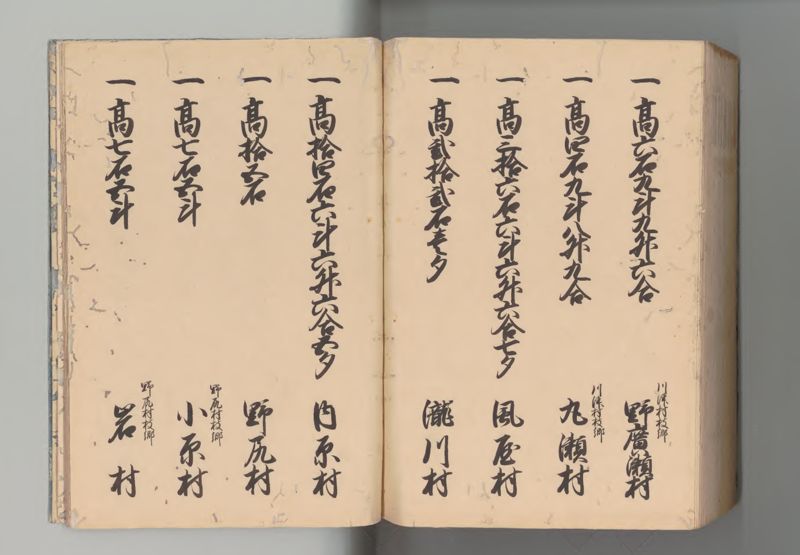 一 高六石九斗九升六合
川津村枝郷
野廣瀬村
一 高四石九斗八升九合
川津村枝郷
九瀬村
一 高三拾六石六斗六升六合七夕
風屋村
一 高弐拾弐石壱夕
瀧川村
一 高拾四石六斗六升六合五夕
内原村
一 高拾五石
野尻村
一 高七石五斗
野尻村枝郷
小原村
一 高七石五斗
野尻村枝郷
岩村